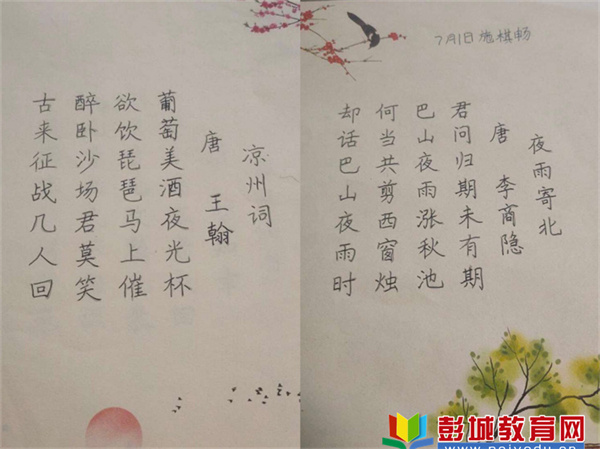 凉州词
唐 王翰
葡萄美酒夜光杯
欲饮琵琶马上催
醉卧沙场君莫笑
古来征战几人回
7月1日 施棋畅
夜雨寄北
唐 李商隐
君问归期未有期
巴山夜雨涨秋池
何当共剪西窗烛
却话巴山夜雨时
彭城教育网